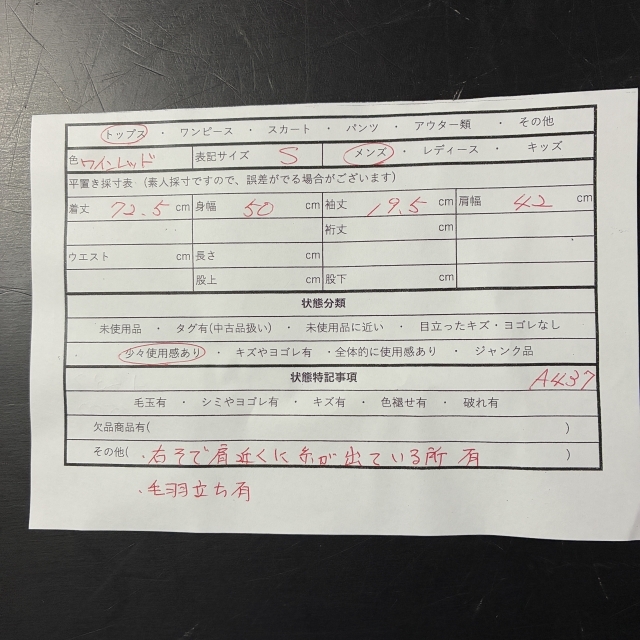 トップス ・ ワンピース ・ スカート ・ パンツ ・ アウター類 ・ その他
色 ワインレッド 表記サイズ S メンズ ・ レディース ・ キッズ
平置き採寸表 (素人採寸ですので、誤差がでる場合がございます)
着丈 72.5 cm 身幅 50 cm 袖丈 19.5 cm 肩幅 42 cm
裄丈 cm
ウエスト cm 長さ cm
股上 cm 股下 cm
状態分類
未使用品 ・ タグ有(中古品扱い) ・ 未使用品に近い ・ 目立ったキズ・ヨゴレなし
少々使用感あり ・ キズやヨゴレ有 ・全体的に使用感あり ・ ジャンク品
状態特記事項 A437
毛玉有 ・ シミやヨゴレ有 ・ キズ有 ・ 色褪せ有 ・ 破れ有
欠品商品有( )
その他( ・右そで肩近くに糸が出ている所有 )
・毛羽立ち有